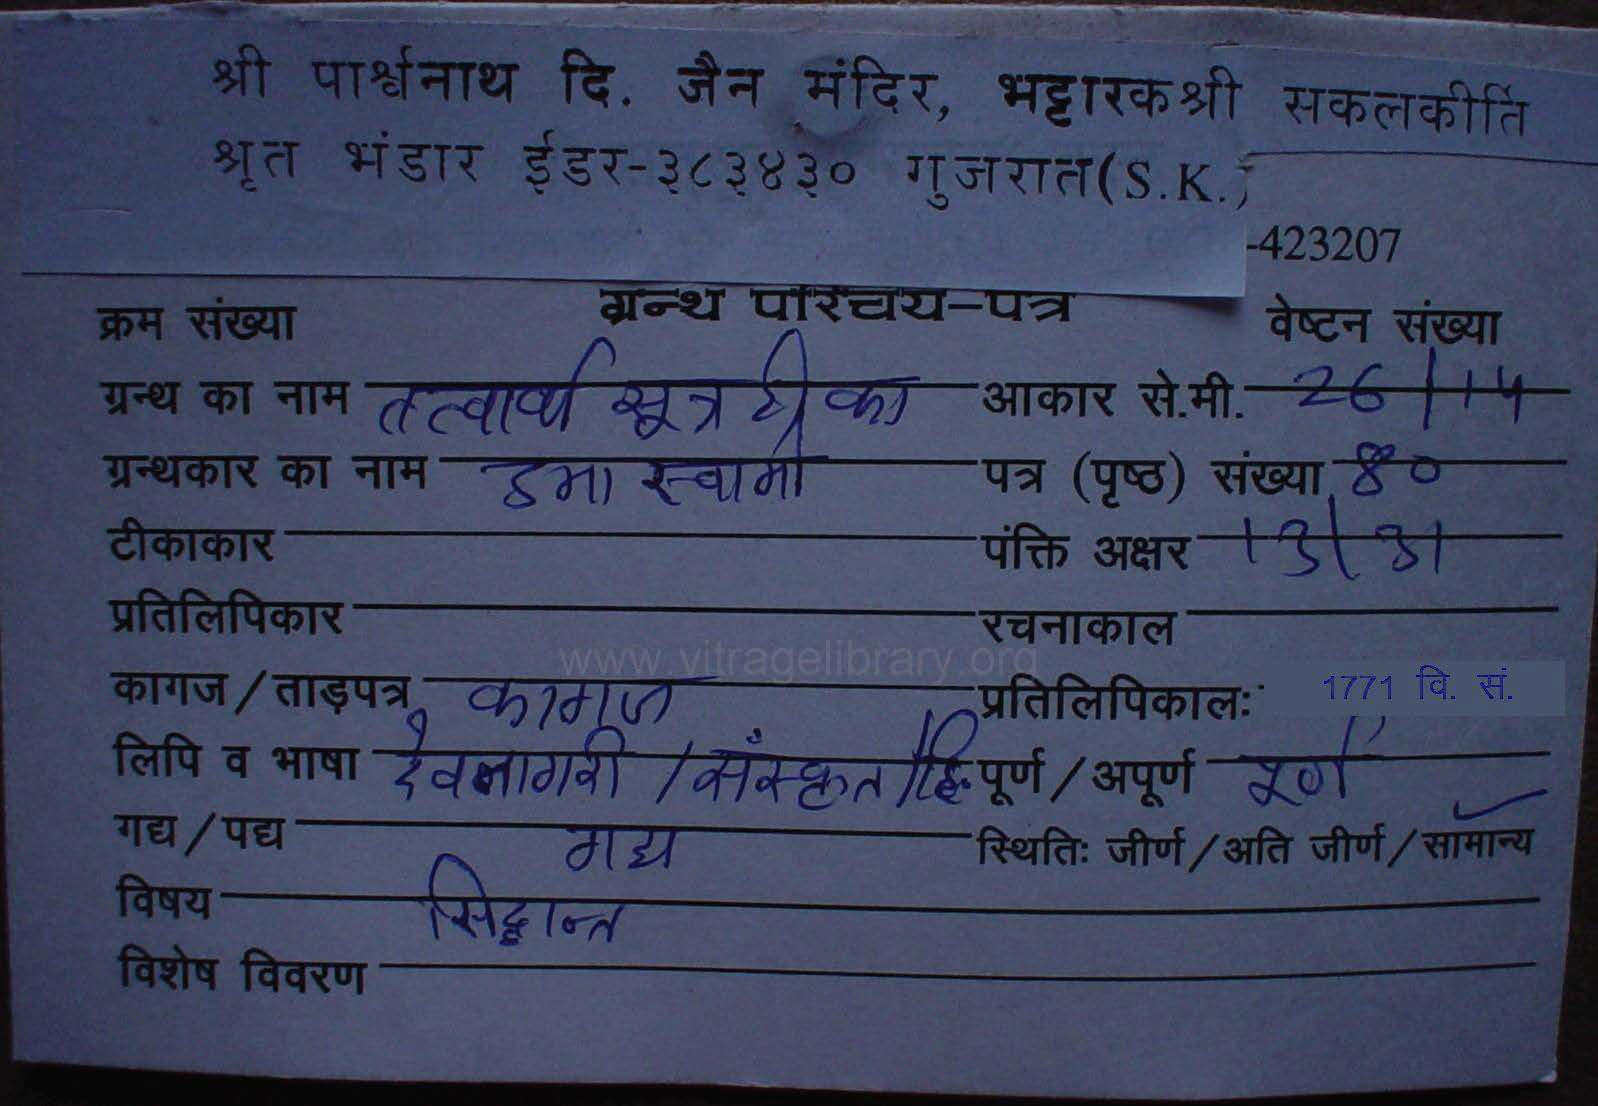 श्री पार्श्वनाथ दि. जैन मंदिर, भट्टारकश्री सकलकीर्ति
श्रृत भंडार ईडर-३८३४३० गुजरात(S.K.)
-423207
ग्रन्थ परिचय-पत्र
क्रम संख्या वेष्टन संख्या
ग्रन्थ का नाम तत्वार्थ सूत्र टीका आकार से.मी. 26/14
ग्रन्थकार का नाम उमा स्वामी पत्र (पृष्ठ) संख्या 80
टीकाकार पंक्ति अक्षर 13/31
प्रतिलिपिकार रचनाकाल
www.vitragelibrary.org
कागज/ताड़पत्र कागज प्रतिलिपिकालः 1771 वि. सं.
लिपि व भाषा देवनागरी/संस्कृत/हि पूर्ण/अपूर्ण पूर्ण
गद्य/पद्य गद्य स्थितिः जीर्ण/अति जीर्ण/सामान्य
विषय सिद्धान्त
विशेष विवरण